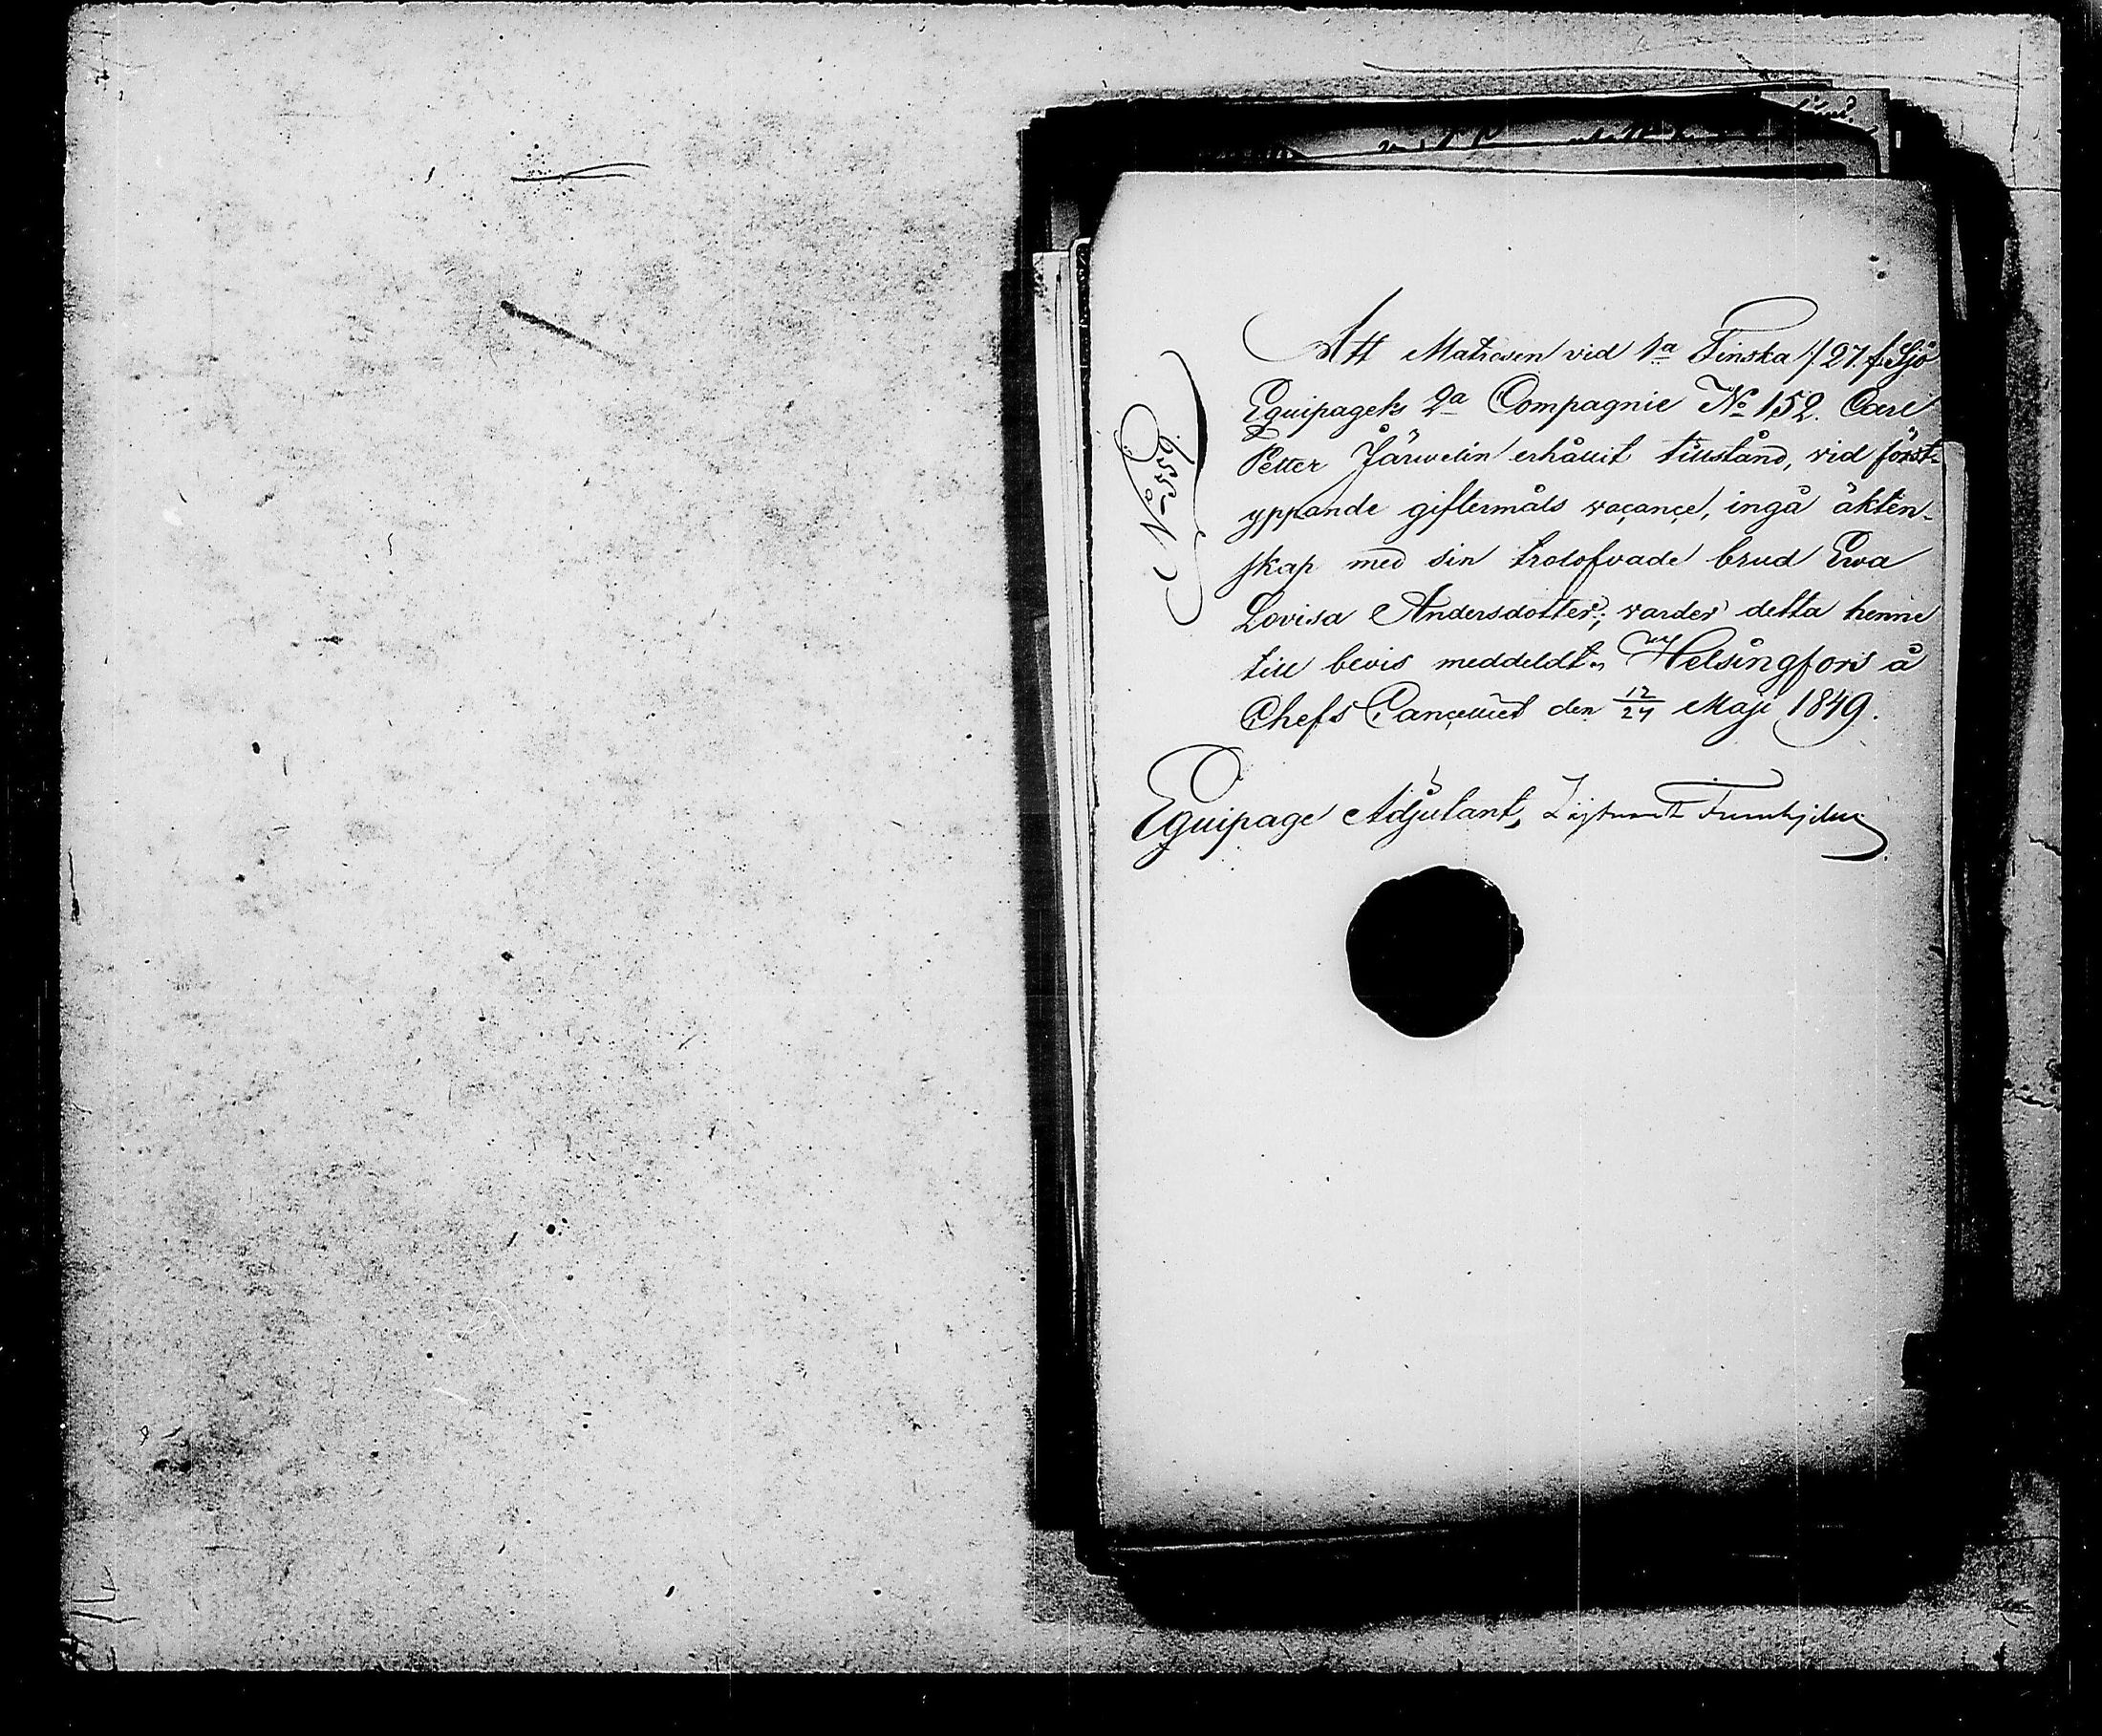 No 559.
Att Matrosen vid 1a Finska /:27:/ Sjö
Equipagets 2a Compagnie No 152. Carl
Petter Järwelin erhållit tillstånd, vid först-
yppande giftermåls vaçançe, ingå äkten-
skap med sin trolofvade brud Ewa
Lovisa Andersdotter; varder detta henne
till bevis meddeldt. Helsingfors å
Chefs Cancelliet den 12/24 Maji 1849.
Equipage Adjutant,